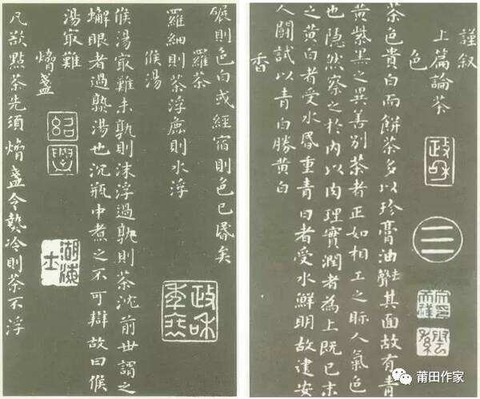 謹叙
上篇論茶
色
茶色貴白而餅茶多以珍膏油去聲其面故有青
黄紫黑之異善别茶者正如相工之眎人氣色
也隱然察之於内以肉理實潤者為上既已末
之黄白者受水昬重青白者受水鮮明故建安
人鬭試以青白勝黄白
香
政和
三
碾則色白或經宿則色已昬矣
羅茶
羅細則茶浮麁則水浮
候湯
候湯最難未孰則沫浮過孰則茶沈前世謂之
蠏眼者過孰湯也沉瓶中煮之不可辯故曰候
湯最難
熁盞
凡欲點茶先須熁盞令熱冷則茶不浮
紹興
莆田作家